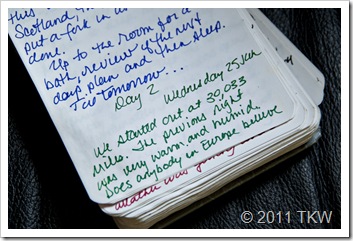 this
Scotland,
put a fork in
done.
Up to the room for a
bath, review of the next
days plan and then sleep.
Tie tomorrow...
Day 2
Wednesday 25 Jun
We started out at 30,033
miles. The previous night
was very warm and humid.
Does anybody in Europe believe
© 2011 TKW